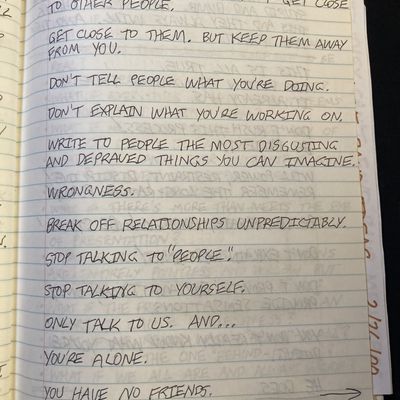 TO OTHER PEOPLE. GET CLOSE
GET CLOSE TO THEM. BUT KEEP THEM AWAY
FROM YOU.
DON'T TELL PEOPLE WHAT YOU'RE DOING.
DON'T EXPLAIN WHAT YOU'RE WORKING ON.
WRITE TO PEOPLE THE MOST DISGUSTING
AND DEPRAVED THINGS YOU CAN IMAGINE.
WRONGNESS.
BREAK OFF RELATIONSHIPS UNPREDICTABLY.
STOP TALKING TO "PEOPLE".
STOP TALKING TO YOURSELF.
ONLY TALK TO US. AND...
YOU'RE ALONE.
YOU HAVE NO FRIENDS.